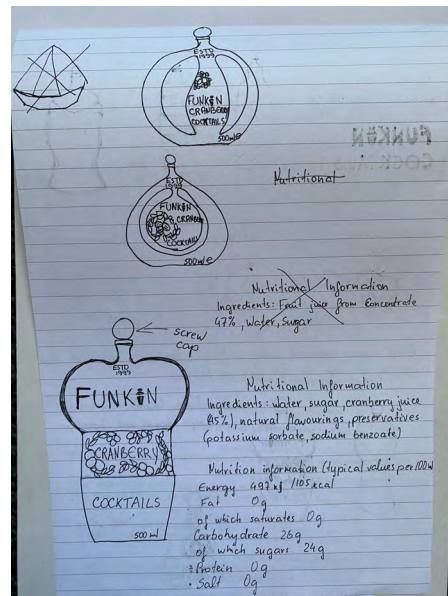 ESTD
1999
FUNKIN
CRANBERRY
COCKTAILS
500ml e
ESTD
1999
FUNKIN
CRANBERRY
COCKTAILS
500ml e
Nutritional
Nutritional Information
Ingredients: Fruit juice from Concentrate
47%, Water, Sugar
screw
cap
ESTD
1999
FUNKIN
CRANBERRY
COCKTAILS
500ml
Nutritional Information
Ingredients: water, sugar, cranberry juice
natural flavourings, preservatives
(potassium sorbate, sodium benzoate)
Nutrition information (typical values per 100ml
Energy 497kj /105kcal
Fat 0g
of which saturates 0g
Carbohydrate 26g
of which sugars 24g
Protein 0g
• Salt 0g